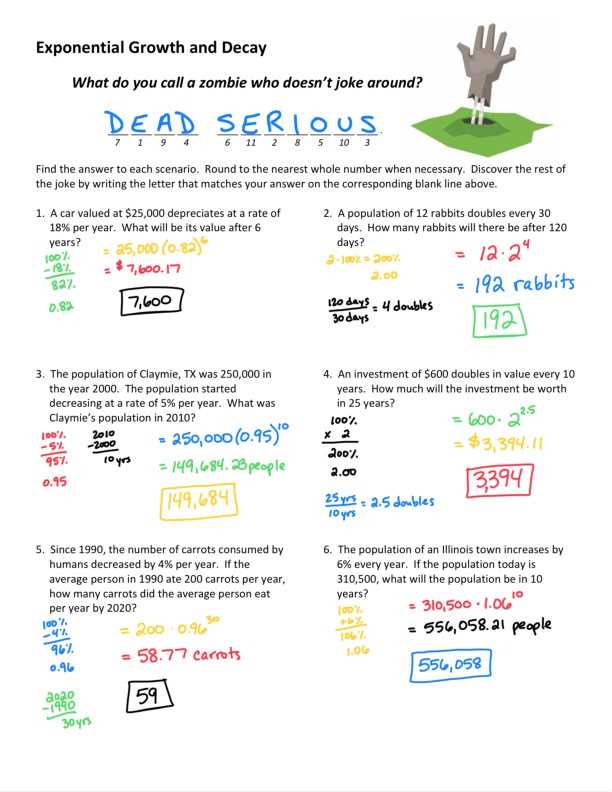 Exponential Growth and Decay
What do you call a zombie who doesn't joke around?
DEAD SERIOUS.
7 1 9 4 6 11 2 8 5 10 3
Find the answer to each scenario. Round to the nearest whole number when necessary. Discover the rest of
the joke by writing the letter that matches your answer on the corresponding blank line above.
1. A car valued at $25,000 depreciates at a rate of
18% per year. What will be its value after 6
years?
100%
-18%
82%
0.82
= 25,000 (0.82)^6
= $7,600.17
7,600
2. A population of 12 rabbits doubles every 30
days. How many rabbits will there be after 120
days?
2·100% = 200%
2.00
120 days
30 days
= 4 doubles
= 12·2^4
= 192 rabbits
192
3. The population of Claymie, TX was 250,000 in
the year 2000. The population started
decreasing at a rate of 5% per year. What was
Claymie's population in 2010?
100%
-5%
95%
0.95
2010
-2000
10 yrs
= 250,000 (0.95)^10
= 149,684.23 people
149,684
4. An investment of $600 doubles in value every 10
years. How much will the investment be worth
in 25 years?
100%
x 2
200%
2.00
25 yrs
10 yrs
= 2.5 doubles
= 600·2^2.5
= $3,394.11
3,394
5. Since 1990, the number of carrots consumed by
humans decreased by 4% per year. If the
average person in 1990 ate 200 carrots per year,
how many carrots did the average person eat
per year by 2020?
100%
-4%
96%
0.96
2020
-1990
30 yrs
= 200·0.96^30
= 58.77 carrots
59
6. The population of an Illinois town increases by
6% every year. If the population today is
310,500, what will the population be in 10
years?
100%
+6%
106%
1.06
= 310,500·1.06^10
= 556,058.21 people
556,058